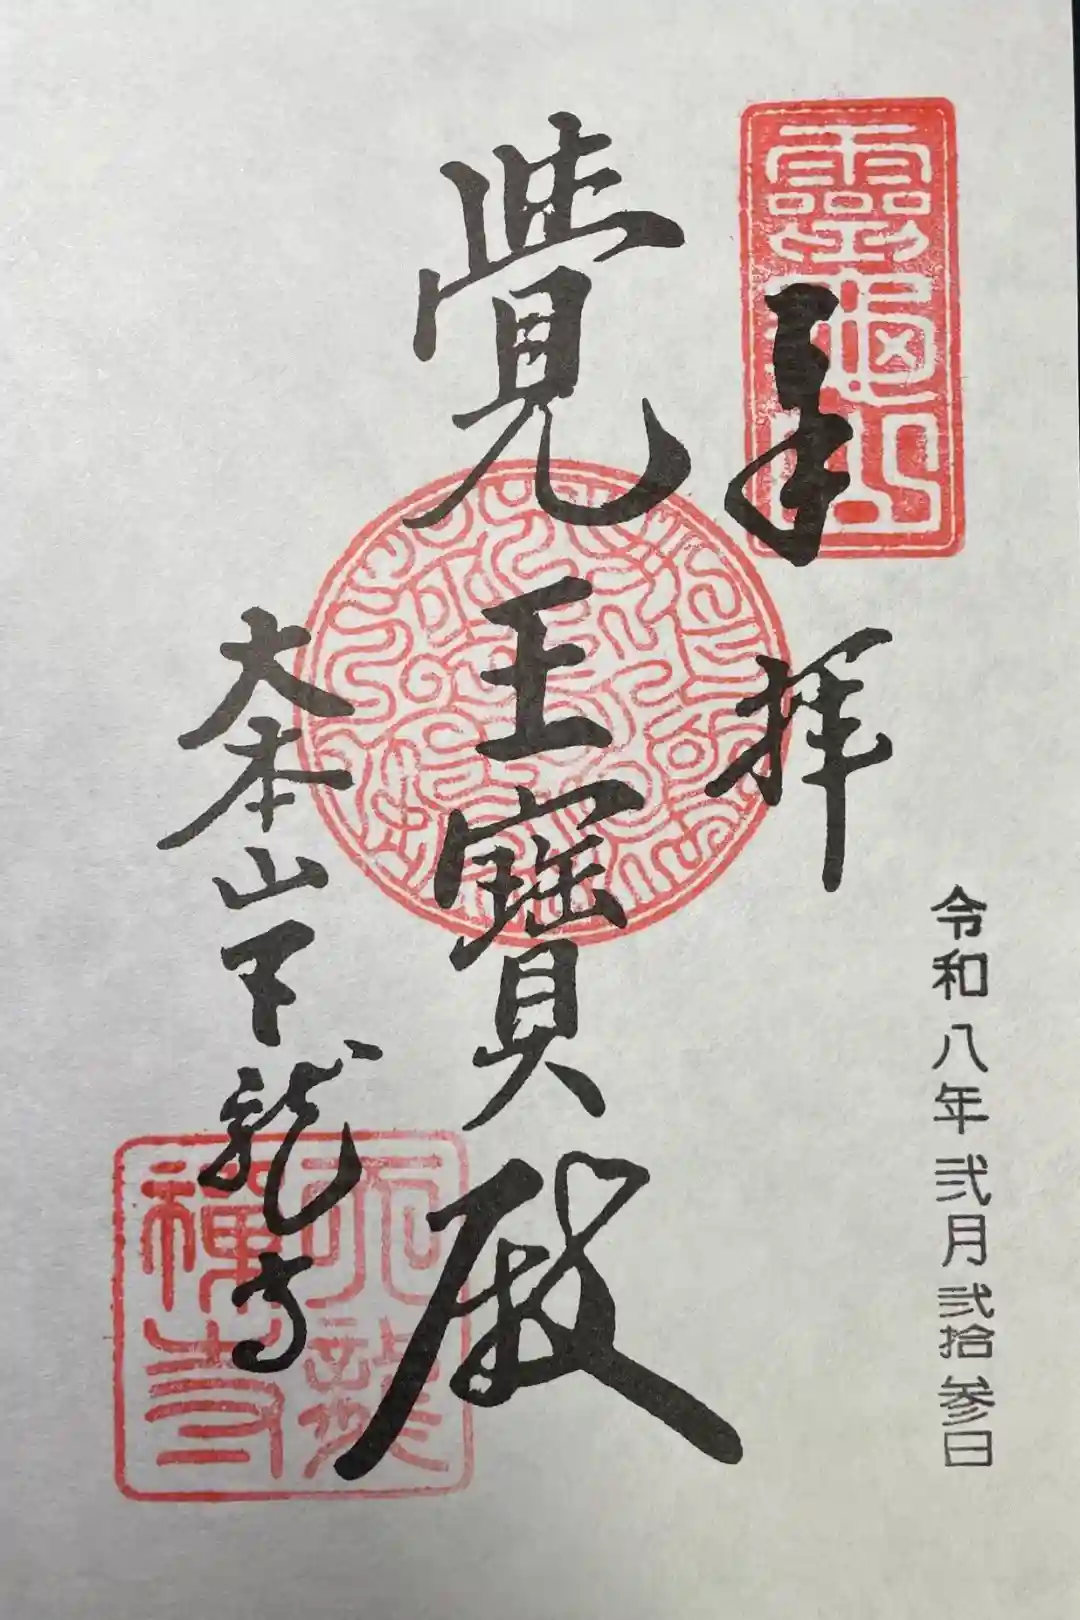 靈龜山
奉拝
令和八年弐月弐拾参日
覺王寶殿
大本山天龍寺
天龍
禅寺